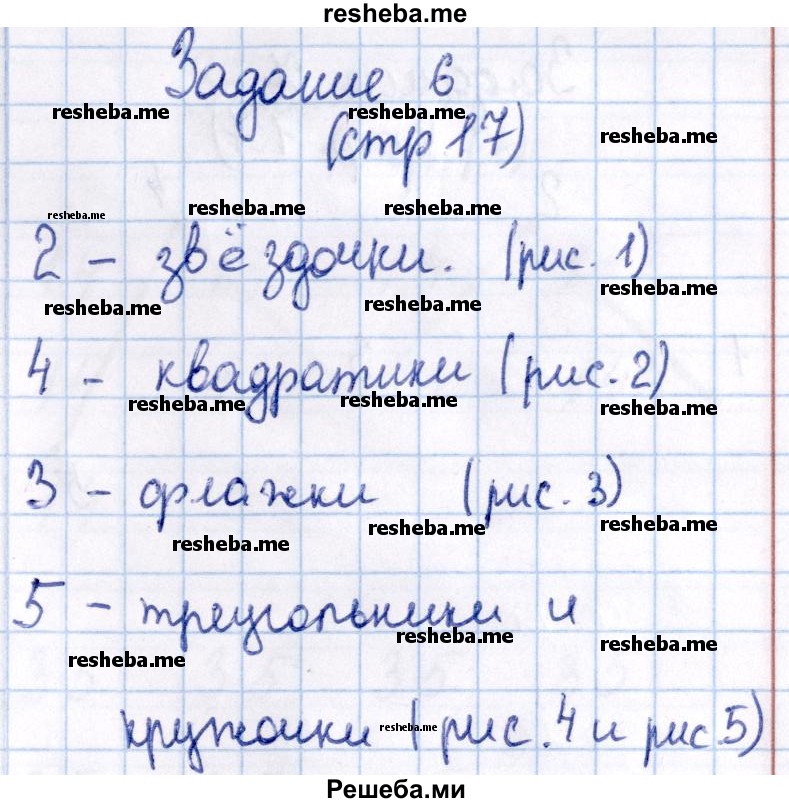 resheba.me
Задание 6
resheba.me resheba.me resheba.me
(стр 17)
resheba.me resheba.me resheba.me
2 - звёздочки. (рис. 1)
resheba.me resheba.me resheba.me
4 - квадратики (рис. 2)
resheba.me resheba.me resheba.me
3 - флажки (рис. 3)
resheba.me resheba.me resheba.me
5 - треугольники и
resheba.me resheba.me resheba.me
кружочки (рис. 4 и рис. 5)
resheba.me
Решеба.ми